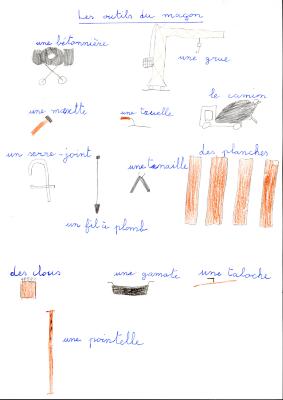 Les outils du maçon
une bétonnière
une grue
le camion
une massette
une truelle
un serre-joint
une tenaille
des planches
un fil à plomb
des clous
une gamate
une taloche
une pointelle